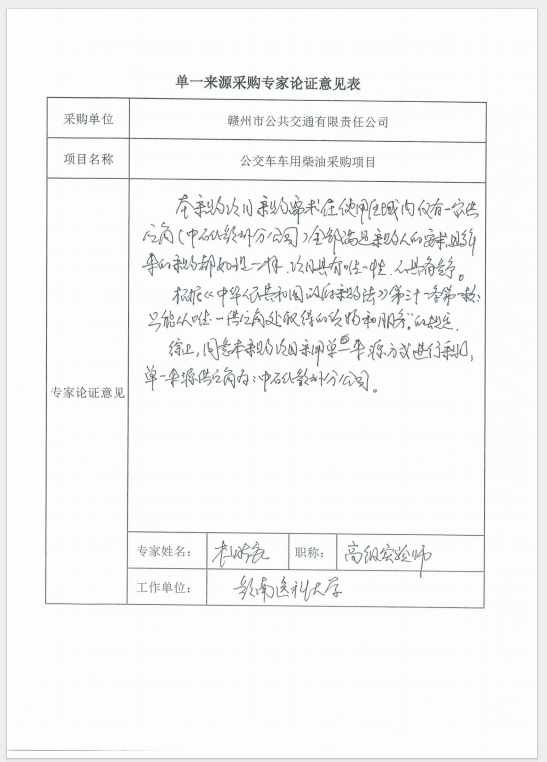 单一来源采购专家论证意见表
采购单位
赣州市公共交通有限责任公司
项目名称
公交车车用柴油采购项目
专家论证意见
本采购项目采购需求在使用区域内仅有一家供
应商(中石化赣州分公司)全部满足采购人的需求,且多年
来的采购都如此一样,项目具有唯一性,不具备竞争。
根据《中华人民共和国政府采购法》第三十一条第一款:
只能从唯一供应商处取得的货物和服务"的规定。
综上,同意本采购项目采用单一来源方式进行采购,
单一来源供应商为:中石化赣州分公司。
专家姓名:
职称:
高级实验师
工作单位:
赣南医科大学